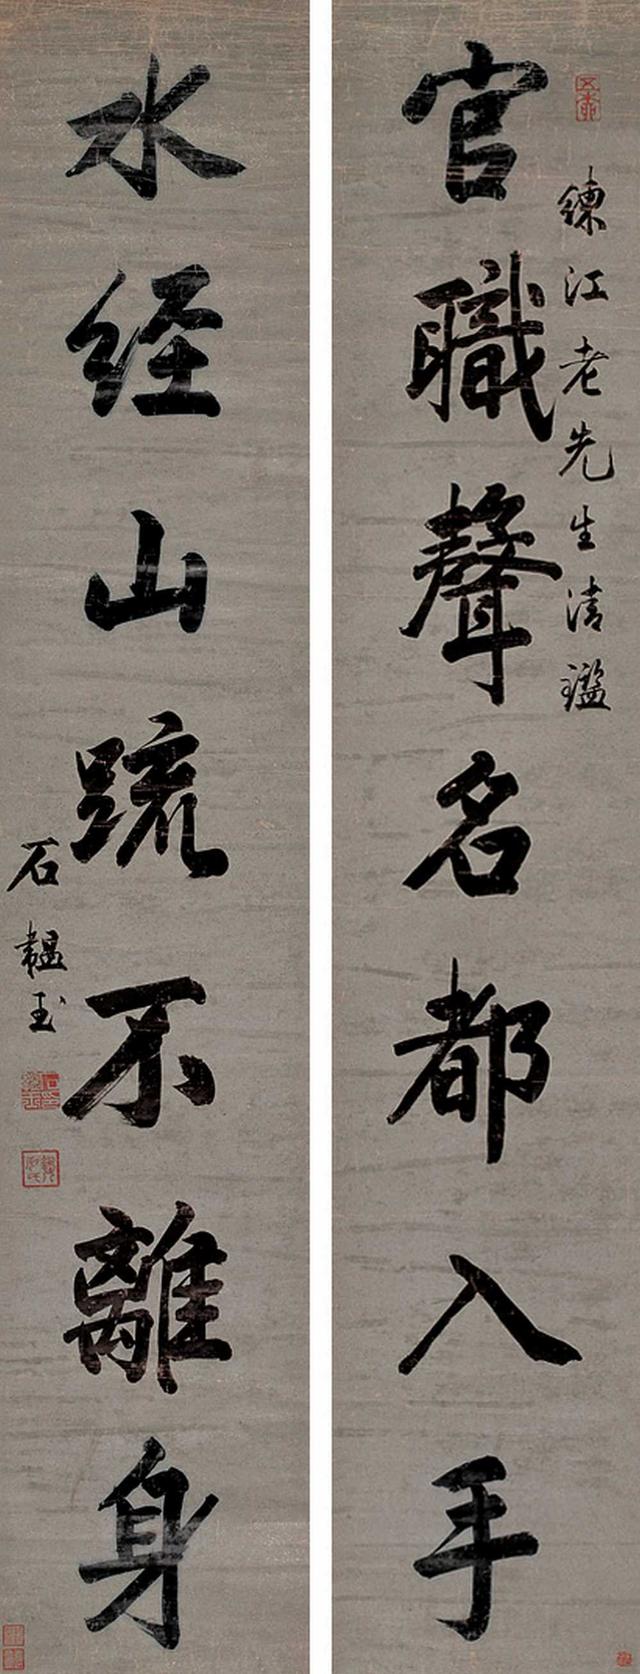 官職聲名都入手
練江老先生清鑑
水經山疏不離身
石韞玉